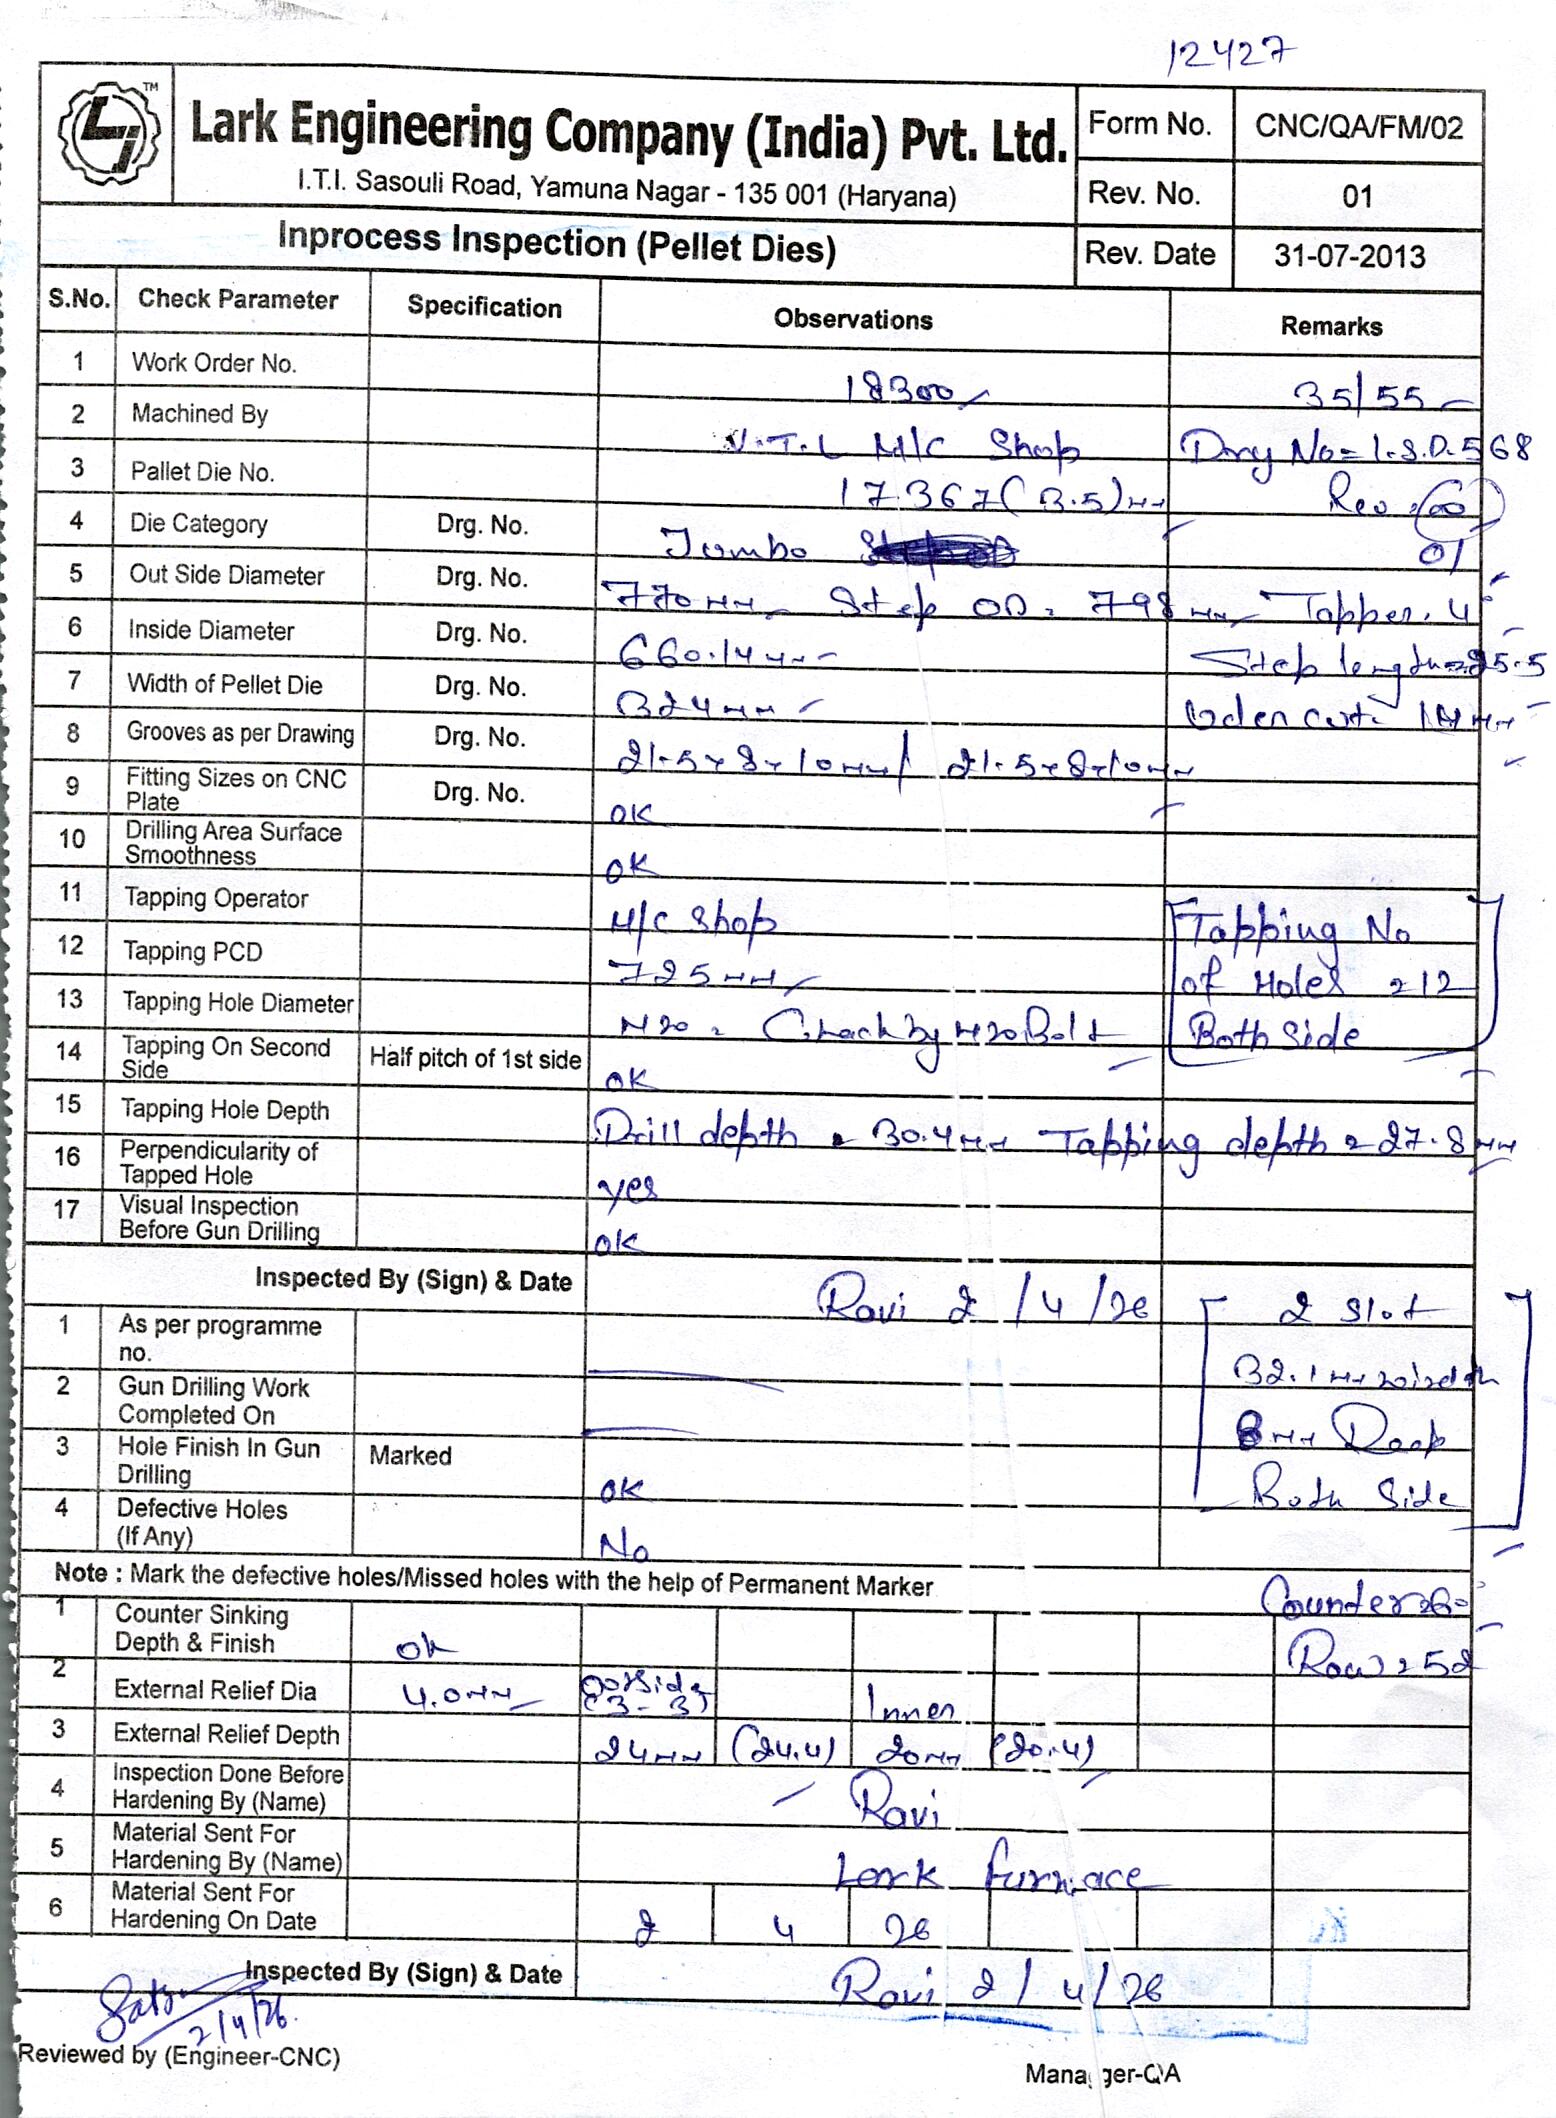 12427
LI TM
Lark Engineering Company (India) Pvt. Ltd.
I.T.I. Sasouli Road, Yamuna Nagar - 135 001 (Haryana)
Form No. CNC/QA/FM/02
Rev. No. 01
Inprocess Inspection (Pellet Dies)
Rev. Date 31-07-2013
S.No. Check Parameter Specification Observations Remarks
1 Work Order No. 18300 35/55
2 Machined By V.T.L M/C Shop Drg No = L.S.D. 568
3 Pallet Die No. 17367 (3.5)mm Rev : 00
4 Die Category Drg. No. Jumbo 01
5 Out Side Diameter Drg. No. 770mm Step OD = 798mm Tapper. 4
6 Inside Diameter Drg. No. 660.14mm Step length = 25.5
7 Width of Pellet Die Drg. No. 324mm Under cut.
8 Grooves as per Drawing Drg. No. 21.5x8x10mm / 21.5x8x10mm
9 Fitting Sizes on CNC Plate Drg. No. OK
10 Drilling Area Surface Smoothness OK
11 Tapping Operator M/C Shop Tapping No
12 Tapping PCD 725mm of Holes = 12
13 Tapping Hole Diameter M20 = Check by M20 Bolt Both Side
14 Tapping On Second Side Half pitch of 1st side OK
15 Tapping Hole Depth Drill depth = 30.4mm Tapping depth = 27.8mm
16 Perpendicularity of Tapped Hole yes
17 Visual Inspection Before Gun Drilling OK
Inspected By (Sign) & Date Ravi 2/4/26 2 Slot
1 As per programme no. 32.1mm width
2 Gun Drilling Work Completed On 8mm Deep
3 Hole Finish In Gun Drilling Marked OK Both Side
4 Defective Holes (If Any) No
Note : Mark the defective holes/Missed holes with the help of Permanent Marker
Counter
1 Counter Sinking Depth & Finish ok Row = 52
2 External Relief Dia 4.0mm outside (3-3) Inner
3 External Relief Depth 24mm (24.4) 20mm (20.4)
4 Inspection Done Before Hardening By (Name) Ravi
5 Material Sent For Hardening By (Name) Lark furnace
6 Material Sent For Hardening On Date 2 4 26
Inspected By (Sign) & Date Ravi 2/4/26
2/4/26.
Reviewed by (Engineer-CNC)
Manager-QA